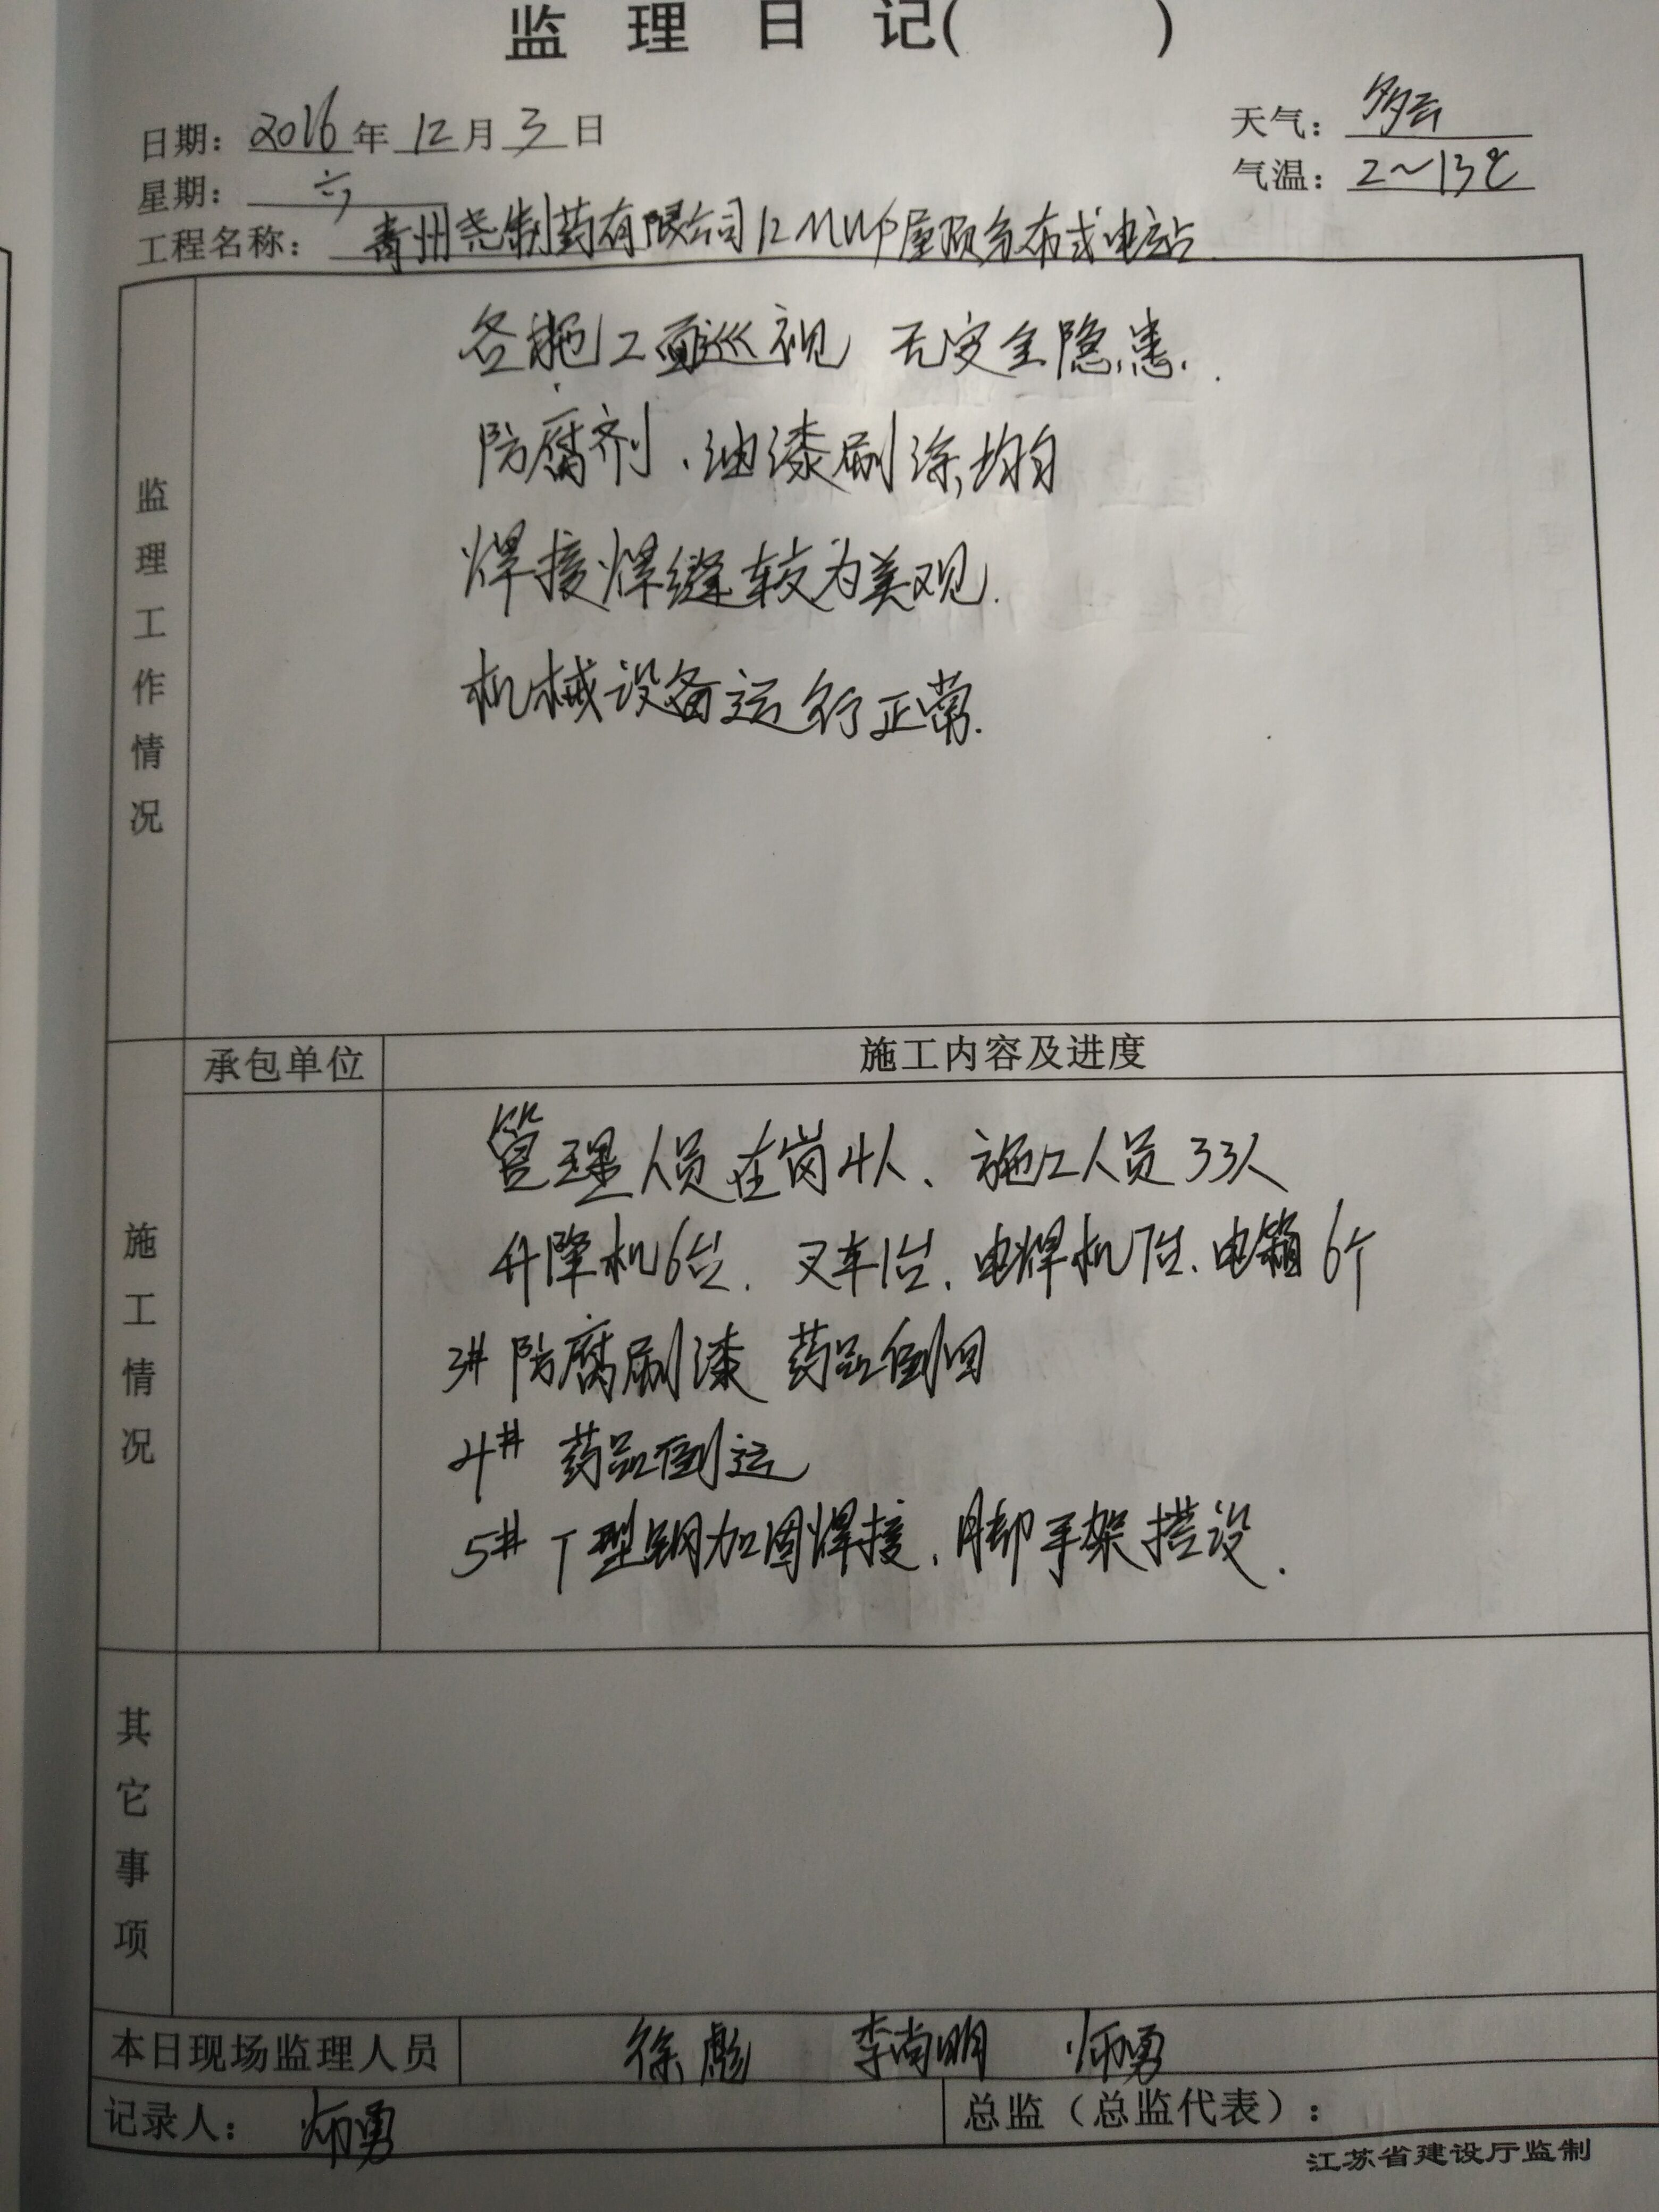 监理日记(    )
日期：2016年12月3日 天气：多云
星期：六 气温：2～13℃
工程名称：青州尧制药有限公司12MWp屋顶分布式电站
监理工作情况
各施工面巡视 无安全隐患.
防腐剂、油漆刷涂均匀
焊接焊缝较为美观.
机械设备运行正常.
承包单位 施工内容及进度
施工情况
管理人员在岗4人、施工人员33人
升降机6台、叉车1台、电焊机7台、电箱6个
3# 防腐刷漆 药品倒回
4# 药品倒运
5# T型钢加固焊接、脚手架搭设.
其它事项
本日现场监理人员 徐彪 李尚明 勇
记录人： 勇 总监（总监代表）：
江苏省建设厅监制